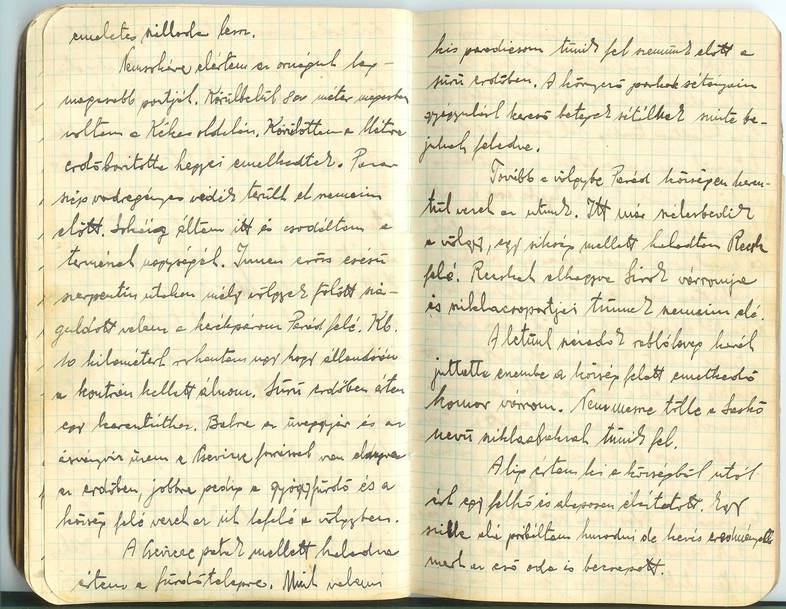 emeletes villada lesz.
Nemsokára elértem az országut leg-
magasabb pontját. Körülbelül 800 méter magasban
voltam a Kékes oldalán. Körülöttem a Mátra
erdőboritotta hegyei emelkedtek. Para-
szép vadregényes vidék terült el szemeim
előtt. Sokáig álltam itt és csodáltam a
természet nagyságát. Innen erős esésü
szerpentin utakon mély völgyek fölött szá-
guldott velem a kerékpárom Parád felé. Kb.
10 kilométert rohantam ugy hogy állandóan
a kontrán kellett állnom. Sürü erdőben értem
egy keresztúthoz. Balra az üveggyár és az
ásványviz üzem a Csevicze forrással van
az erdőben, jobbra pedig a gyógyfürdő és a
község felé vezet az út lefelé a völgyben.
A Csevicze patak mellett haladva
értem a fürdőtelepre. Mint valami
kis paradicsom tűnik fel szemünk előtt a
sürü erdőben. A környező parkok sétányain
gyógyulást kereső betegek sétálnak szinte be-
feledve.
Tovább a völgybe Parád községen keresz-
tül vezet az utunk. Itt már szélesbedik
a völgy, egy sikság mellett haladtam Recsk
felé. Recsket elhagyva Sirok várromja
és sziklacsoportjai tünnek szemeim elé.
A letünt századok rablólovag korát
juttatta eszembe a község felett emelkedő
komor várrom. Nem messze tőlle a
nevü sziklaalakzat tünik fel.
Alig értem ki a községből utól
ért egy felhő és alaposan eláztatott. Egy
szikla alá próbáltam huzodni de kevés eredménnyel
mert az eső oda is becsapott.